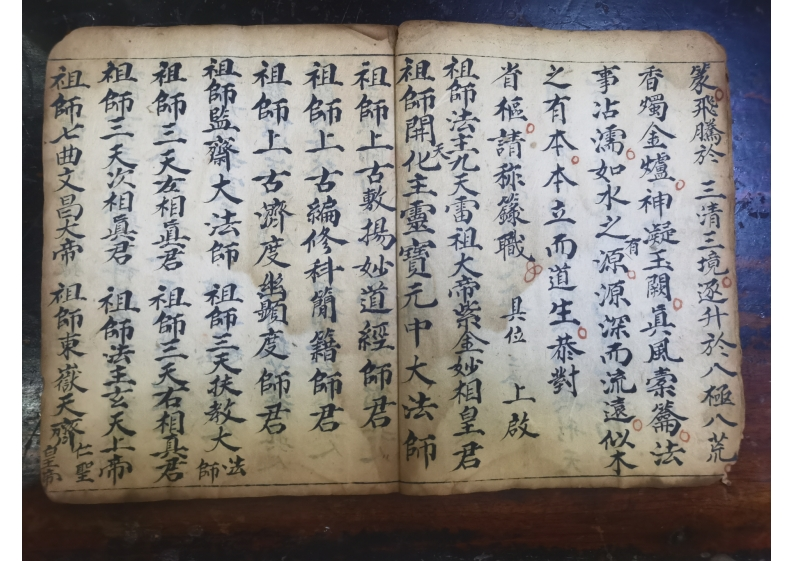 篆飛騰於 三清三境逐升於八極八荒
香燭金爐神凝玉闕眞風崇籥法
事沾濡如水之有源源深而流遠似木
之有本本立而道生恭對
省樞請称籙職 具位 上啟
祖師法主九天雷祖大帝紫金妙相皇君
祖師開化天主靈寶元中大法師
祖師上古敷揚妙道經師君
祖師上古編修科簡籍師君
祖師上古濟度幽顯度師君
祖師監齋大法師 祖師三天扶教大法師
祖師三天左相眞君 祖師三天右相真君
祖師三天次相眞君 祖師法主玄天上帝
祖師七曲文昌大帝 祖師東嶽天齊仁聖皇帝